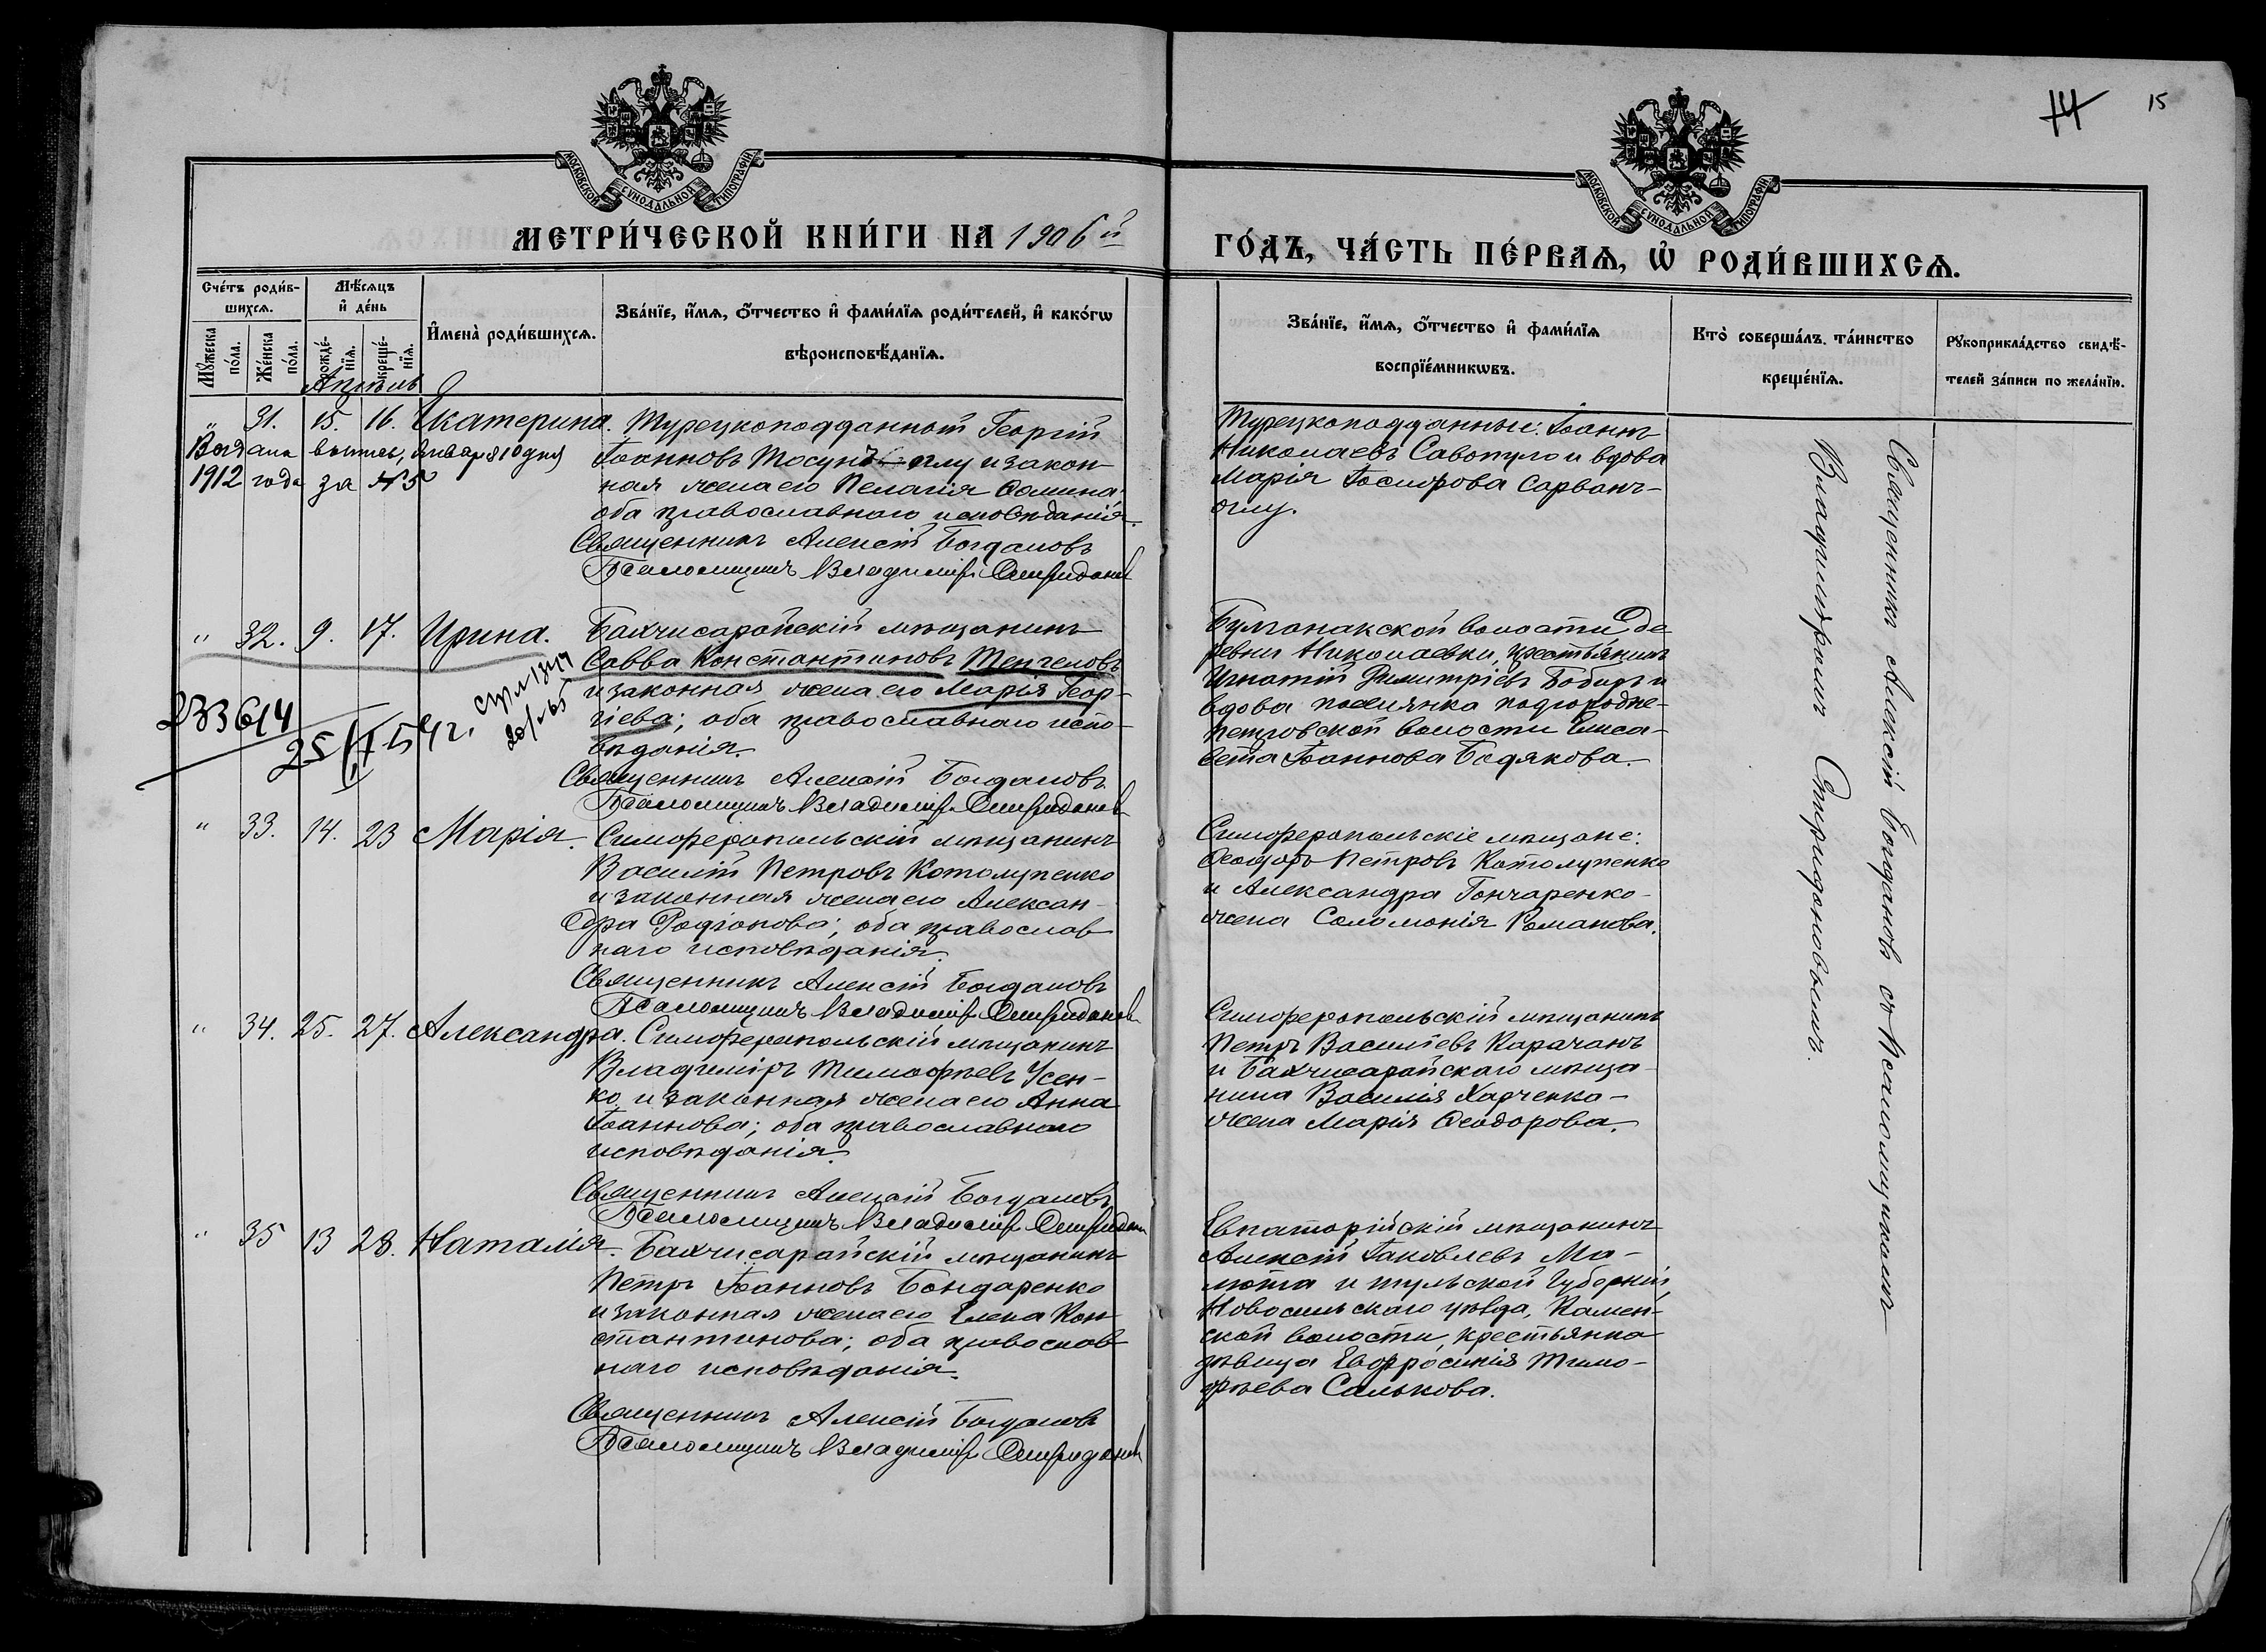 14 15
МОСКОВСКОЙ СѴНОДАЛЬНОЙ ТИПОГРАФІИ
МОСКОВСКОЙ СѴНОДАЛЬНОЙ ТИПОГРАФІИ
МЕТРИ́ЧЕСКОЙ КНИ́ГИ НА 1906й
ГО́ДЪ, ЧА́СТЬ ПЕ́РВАѦ, Ѡ҆ РОДИ́ВШИХСѦ.
Сче́тъ роди́в-
шихсѧ.
Мꙋ́жеска по́ла.
Же́нска по́ла.
Мѣ́сѧцъ
и҆ де́нь
рожде́-нїѧ.
креще́-нїѧ.
И҆мена̀ роди́вшихсѧ.
Зва́нїе, и҆́мѧ, ѻ҆́тчество и҆ фами́лїѧ роди́телей, и҆ како́гѡ
вѣроисповѣ́данїѧ.
Зва́нїе, и҆́мѧ, ѻ҆́тчество и҆ фами́лїѧ
воспрїе́мникѡвъ.
Кто̀ соверша́лъ та́инство
креще́нїѧ.
Рꙋкоприкла́дство свидѣ́-
телей за́писи по жела́нїю.
Апрѣль
" 31. 15. 16. Екатерина. Турецкоподданный Георгій
Іоанновъ Тосунъ-оглу и закон-
ная жена его Пелагія Ѳомина
оба православнаго исповѣданія.
Священникъ Алексій Богдановъ
Псаломщикъ Владиміръ Спиридоновъ
Выдана выпись, января 10 дня
1912 года за №5
Турецкоподданные: Іоаннъ
Николаевъ Савопуло и вдова
Марія Іосифова Сарванъ-
оглу.
" 32. 9. 17. Ирина. Бахчисарайскій мѣщанинъ
Савва Константиновъ Тенгеловъ
и законная жена его Марія Геор-
гіева; оба православнаго испо-
вѣданія.
Священникъ Алексій Богдановъ
Псаломщикъ Владиміръ Спиридоновъ
233614
25/VI-54г.
Булганакской волости де
ревни Николаевки, крестьянинъ
Игнатій Димитріевъ Бобырь и
вдова поселянка подгородне-
петровской волости Елиса-
вета Іоаннова Бедякова.
" 33. 14. 23 Марія. Симферопольскій мѣщанинъ
Василій Петровъ Котолупенко
и законная жена его Алексан-
дра Родіонова; оба православ
наго исповѣданія.
Священникъ Алексій Богдановъ
Псаломщикъ Владиміръ Спиридоновъ
Симферопольскіе мѣщане:
Ѳеодоръ Петровъ Котолупенко
и Александра Гончаренко-
жена Соломонія Романова.
" 34. 25. 27. Александра. Симферопольскій мѣщанинъ
Владиміръ Тимоѳѣевъ Усен-
ко и законная жена его Анна
Іоаннова; оба православнаго
исповѣданія.
Священникъ Алексій Богдановъ
Псаломщикъ Владиміръ Спиридоновъ
Симферопольскій мѣщанинъ
Петръ Васильевъ Карачанъ
и Бахчисарайскаго мѣща-
нина Василія Харченко-
жена Марія Ѳеодорова.
" 35 13 28. Наталія. Бахчисарайскій мѣщанинъ
Петръ Іоанновъ Бондаренко
и законная жена его Елена Кон
стантинова; оба православ
наго исповѣданія.
Священникъ Алексій Богдановъ
Псаломщикъ Владиміръ Спиридоновъ
Евпаторійскій мѣщанинъ
Алексій Іаковлевъ Ма-
люта и тульской губерніи,
Новосильскаго уѣзда, Камен-
ской волости, крестьянка
дѣвица Евфросинія Тимо-
ѳѣева Салькова.
Священникъ Алексій Богдановъ съ псаломщикомъ
Владиміромъ Спиридоновымъ.